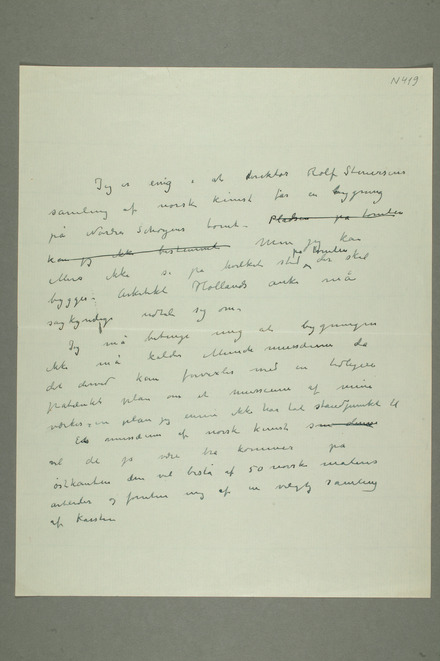 N 419
Jeg er enig i at direktør Rolf Stenersens
samling af norsk kunst får en bygning
på Nordre Schøyens tomt. Pladsen på tomten
kan jeg ikke bestemme Men jeg kan
ikke si på hvilket sted på tomten det skal
bygges. Arkitekt Hollands anke må
sagkyndige udtale sig om.
Jeg må betinge mig at bygningen
ikke må kaldes Munchmuseum da
det derved kan forvexles med en tidligere
påtænkt plan om et museum af mine
værker – en plan jeg ennu ikke har tat standpunkt til
Et museum af norsk kunst som denne
vil det jo være bra kommer på
østkanten den vil bestå af 50 norske maleres
arbeider og foruten mig af en samling
af Karsten